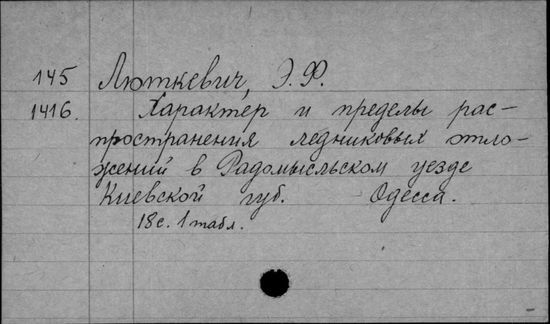 145 Люткевич, Э. Ф.
1416. Характер и пределы рас-
пространения ледниковых отло-
жений в Радомысльском уезде
Киевской губ. Одесса.
18 с. 1 табл.